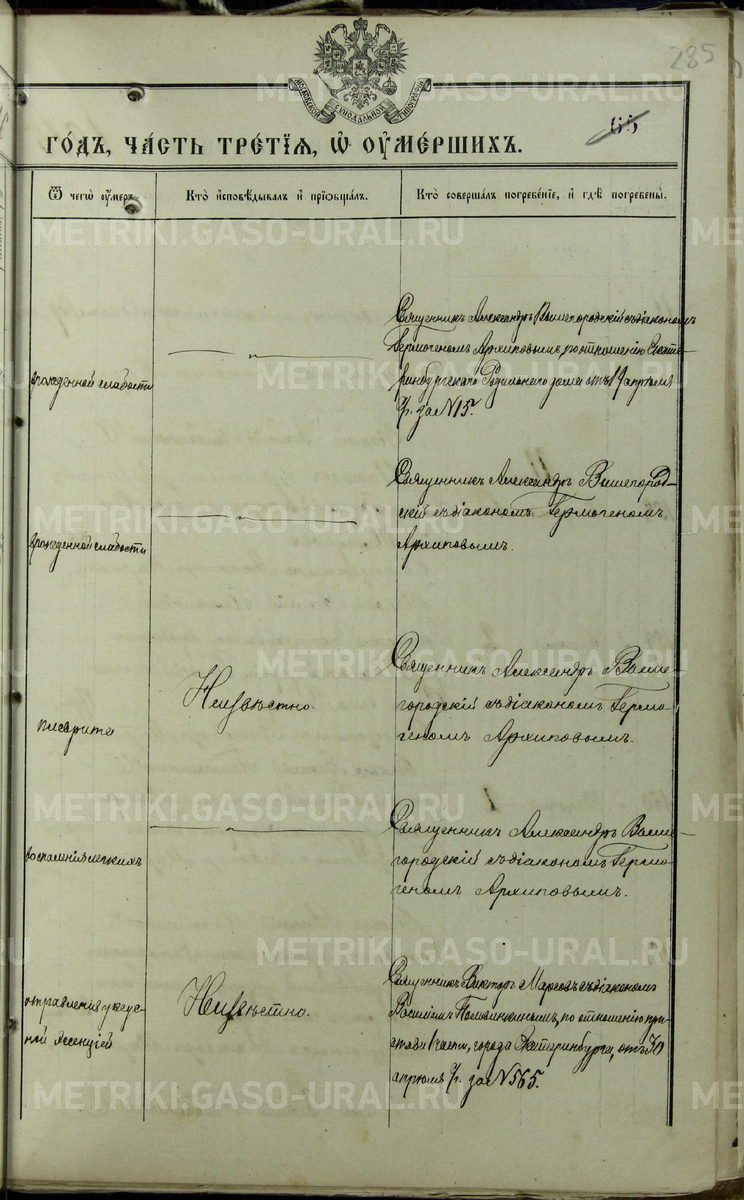 285
МОСКОВСКОЙ СѴНОДАЛЬНОЙ ТИПОГРАФІИ
65
ГО́ДЪ, ЧА́СТЬ ТРЕ́ТІѦ, Ѡ҆ ОУ҆МЕ́РШИХЪ.
Ѿ чегѡ̀ оу҆́меръ.
Кто̀ и҆сповѣ́дывалъ и҆ прїѡбща́лъ.
Кто̀ соверша́лъ погребе́нїе, и҆ гдѣ̀ погребены̀.
врожденной слабости
Священникъ Александръ Вышегородскій съ діакономъ
Гермогеномъ Архиповымъ, по отношенію Екате-
ринбургскаго Родильнаго дома отъ 19 апрѣля
с/г. за № 15.
врожденной слабости
Священникъ Александръ Вышегород-
скій съ діакономъ Гермогеномъ
Архиповымъ.
плеврита
Неизвѣстно.
Священникъ Александръ Выше-
городскій съ діакономъ Гермо-
геномъ Архиповымъ.
воспаленія легкихъ
Священникъ Александръ Выше-
городскій съ діакономъ Гермо-
геномъ Архиповымъ.
отравленія уксус-
ной эссенціей
Неизвѣстно.
Священникъ Викторъ съ діакономъ
Василіемъ по отношенію при-
става 1 части, города Екатеринбурга, отъ 30
апрѣля с/г. за № 565.
METRIKI.GASO-URAL.RU